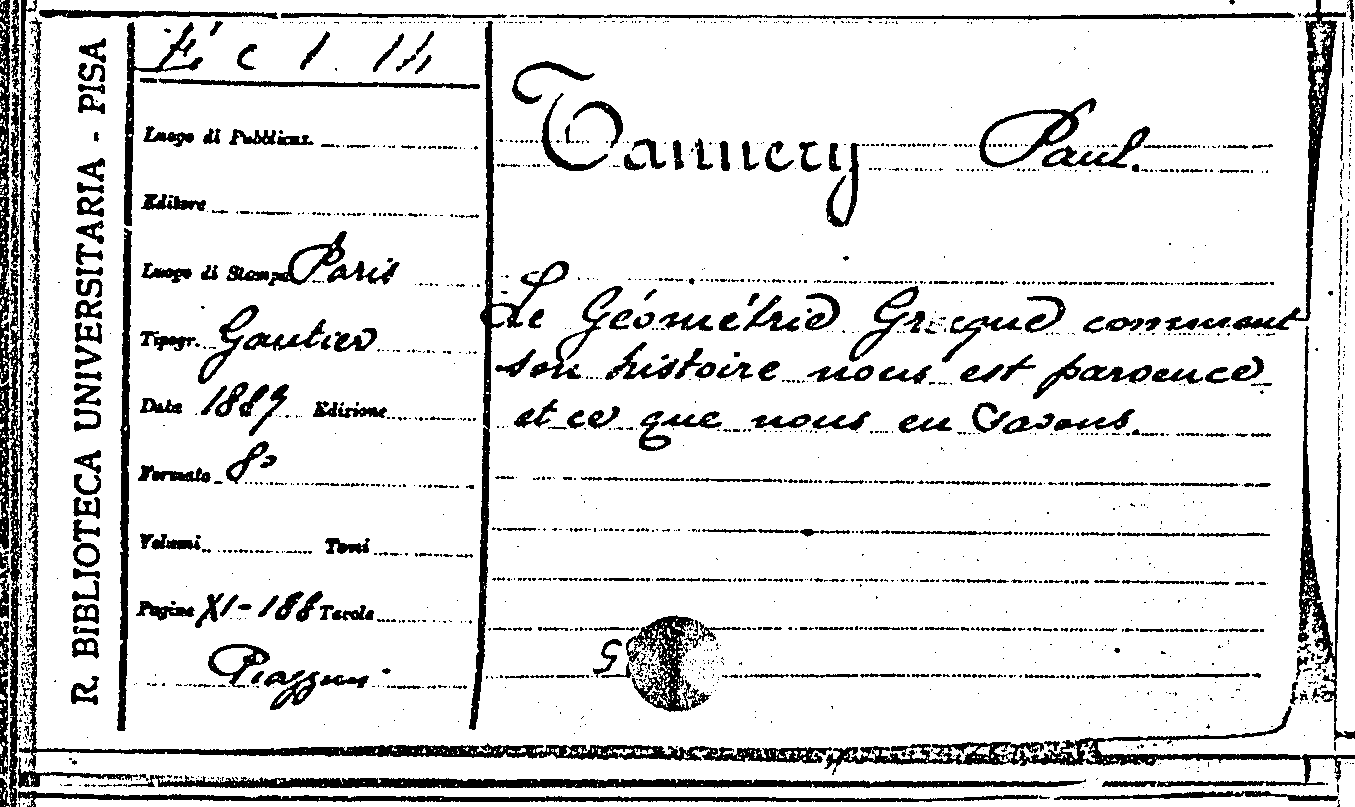 R. BIBLIOTECA UNIVERSITARIA - PISA
E c 1 14
Luogo di Pubblicaz.
Editore
Luogo di Stampa Paris
Tipogr. Gautier
Data 1887 Edizione
Formato 8º
Volumi Tomi
Pagine XI-188 Tavole
Tannery Paul.
Le Géométrie Grecque comment
son histoire nous est parvence
et ce que nous en savons.